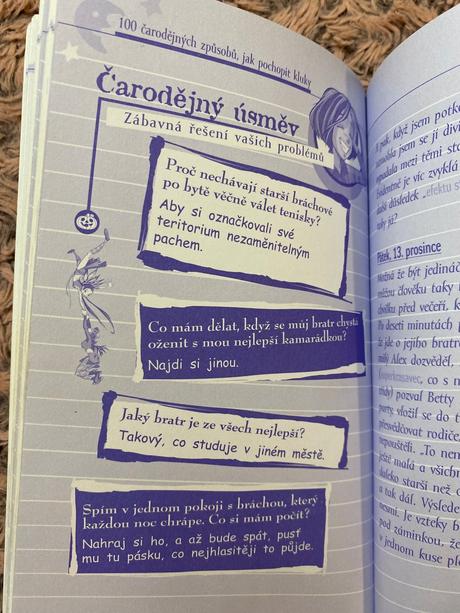 100 čarodějných způsobů, jak pochopit kluky
Čarodějný úsměv
Zábavná řešení vašich problémů
Proč nechávají starší bráchové
po bytě věčně válet tenisky?
Aby si označkovali své
teritorium nezaměnitelným
pachem.
Co mám dělat, když se můj bratr chystá
oženit s mou nejlepší kamarádkou?
Najdi si jinou.
Jaký bratr je ze všech nejlepší?
Takový, co studuje v jiném městě.
Spím v jednom pokoji s bráchou, který
každou noc chrápe. Co si mám počít?
Nahraj si ho, a až bude spát, pusť
mu tu pásku, co nejhlasitěji to půjde.
pak, když jsem potk
jsem se jí divi
mezi těmi sto
je víc zvyklá
další důsledek „efektu s
taky já?
Pátek, 13. prosince
Možná že být jedináč
můžou člověku taky
chvilku před večeří, k
Po deseti minutách
že jde o jejího bratr
milý Alex dozvěděl,
(superkrasavec, co s n
třídy) pozval Betty
party, vložil se do t
přesvědčovat rodiče
nepouštěli. „To nen
ještě malá a všichn
daleko starší než o
a tak dál. Výslede
nesmí. Je vzteky b
pod záminkou, že
v jednom kuse pře